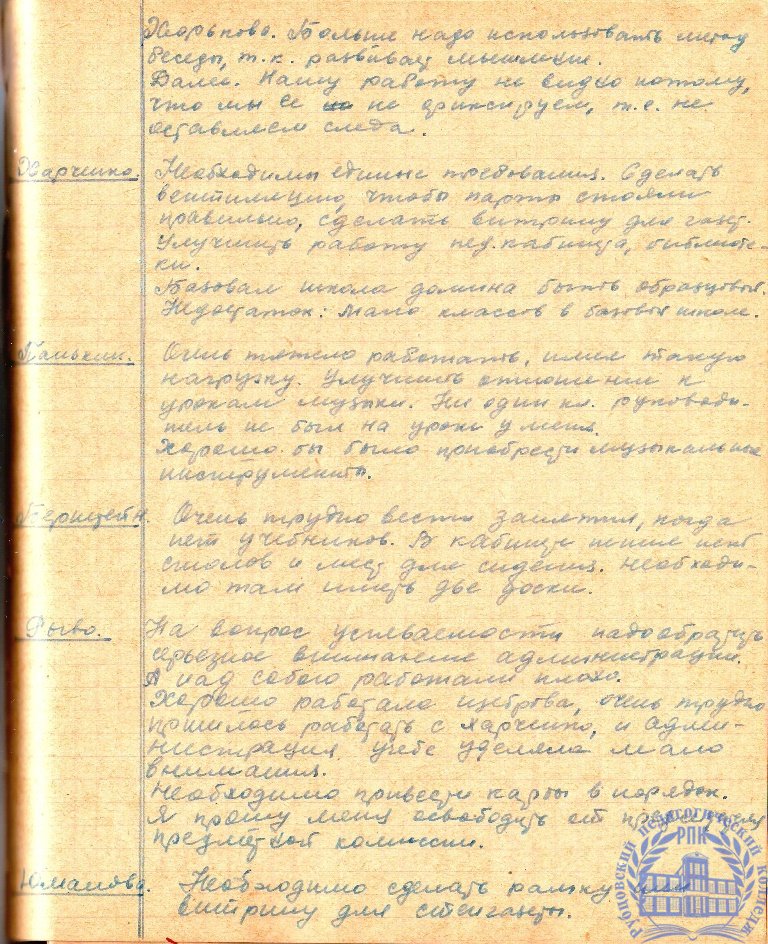 Харькова. Больше надо использовать метод
беседы, т.к. развивает мышление.
Далее. Нашу работу не видно потому,
что мы ее не фиксируем, т.е. не
оставляем следа.
Харченко. Необходимы единые требования. Сделать
вентиляцию, чтобы парты стояли
правильно, сделать витрину для газет.
Улучшить работу пед. кабинета, библиоте-
ки.
Базовая школа должна быть образцовой.
Недостаток: мало классов в базовой школе.
Панькин. Очень тяжело работать, имея такую
нагрузку. Улучшить отношение к
урокам музыки. Ни один кл. руководи-
тель не был на уроке у меня.
Хорошо бы было приобрести музыкальные
инструменты.
Бернштейн. Очень трудно вести занятия, когда
нет учебников. В кабинете нет
столов и мест для сидения. Необходи-
мо там иметь две доски.
На вопрос успеваемости надо обратить
серьезное внимание администрации.
А над собою работали плохо.
Хорошо работала очень трудно
пришлось работать с Харченко, и адми-
нистрация учебе уделяла мало
внимания.
Необходимо привести карты в порядок.
Я прошу меня освободить от
предметной комиссии.
Юманова. Необходимо сделать рамку или
витрину для стенгазеты.
Рубцовский педагогический колледж
РПК